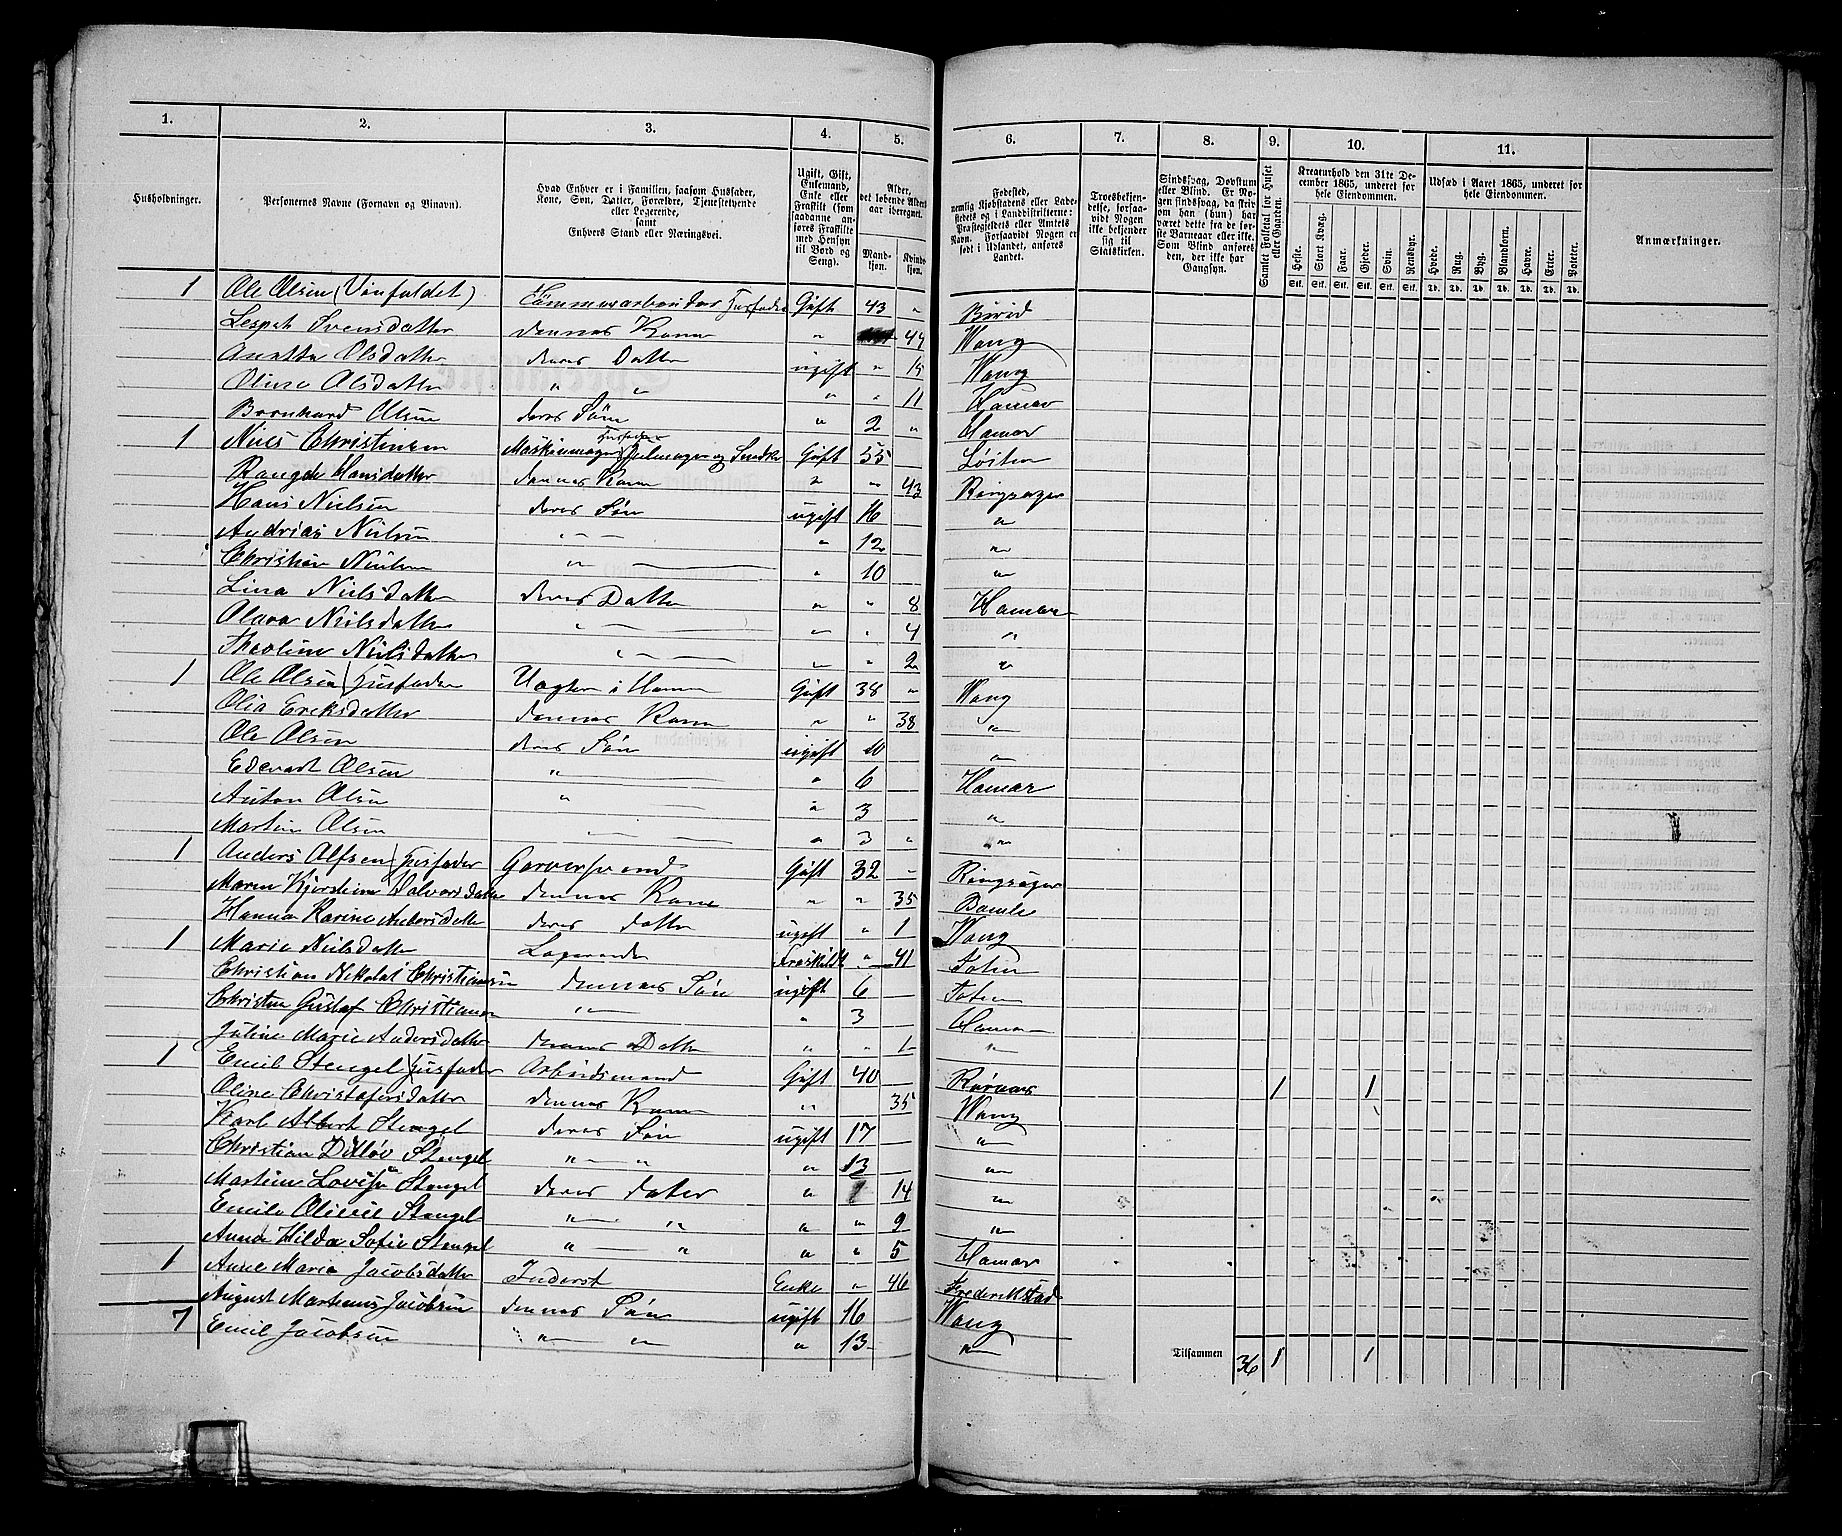 1. 2. 3. 4. 5. 6. 7. 8. 9. 10. 11.
Husholdninger.
Personernes Navne (Fornavn og Binavn).
Hvad Enhver er i Familien, saasom Husfader, Kone, Søn, Datter, Forældre, Tjenestetyende eller Logerende, samt Enhvers Stand eller Næringsvei.
Ugift, Gift, Enkemand, Enke eller Fraskilt (som saadanne anføres Fraskilte med Hensyn til Bord og Seng).
Alder, det løbende Alders-aar iberegnet.
Mandkjøn. Kvindekjøn.
Fødested, nemlig Kjøbstadens eller Ladestedets og i Landdistrikterne: Præstegjeldets eller Amtets Navn. Forsaavidt Nogen er født i Udlandet, anføres Landet.
Troesbekjendelse, forsaavidt Nogen ikke bekjender sig til Statskirken.
Sindssvag, Døvstum eller Blind. Er Nogen sindssvag, da skriv om han (hun) har været dette fra de første Barneaar eller ikke. Som Blind anføres den, der ikke har Gangsyn.
Samlet Folketal for Huset eller Gaarden.
Kreaturhold den 31te December 1865, underet for hele Eiendommen.
Heste. Stort Kvæg. Faar. Gjeder. Svin. Rensdyr.
Stk. Stk. Stk. Stk. Stk. Stk.
Udsæd i Aaret 1865, underet for hele Eiendommen.
Hvede. Rug. Byg. Blandkorn. Havre. Erter. Poteter.
Td. Td. Td. Td. Td. Td. Td.
Anmærkninger.
1 Ole Olsen (Vinfaldet) Tømmerarbeider Husfader Gift 43 " Birid
Svensdatter dennes Kone " 44 Wang
Anette Olsdatter deres Datter ugift " 15 Wang
Oline Olsdatter " " " " 11 Hamar
Bernhard Olsen deres Søn " 2 " Hamar
1 Niels Christinsen Husfader Gift 55 Løiten
Hansdatter dennes Kone " " 43 Ringsager
Hans Nielsen deres Søn ugift 16 "
Andrias Nielsen " " 12 "
Christian Nielsen " " 10 "
Lina Nielsdatter deres Datter " " 8 Hamar
Nielsdatter " " " 4 "
Theoline Nielsdatter " " " 2 "
1 Ole Olsen Husfader Vægter i Hamar Gift 38 " Wang
Olia Eriksdatter dennes Kone " " 38 "
Ole Olsen deres Søn ugift 10 "
Edevart Olsen " " 6 Hamar
Anton Olsen " " 3 "
Martin Olsen " " 3 " "
1 Anders Alfsen Husfader Garversvend Gift 32 " Ringsager
Maren Kjerstine Halvorsdatter dennes Kone " " 35 Bamle
Hanna Karine Andersdatter deres datter ugift " 1 Wang
1 Marie Nielsdatter Logerende Fraskildt " 41 Toten
Christian Nikolai Christiansen dennes Søn ugift 6 Toten
Christen Gustaf Christiansen " " 3 Hamar
Juline Marie Andersdatter dennes Datter " " 1 "
1 Emil Stengel Husfader Arbeidsmand Gift 40 1 1
Oline Christofersdatter dennes Kone " 35 Wang
Karl Albert Stengel deres Søn ugift 17 "
Christian Ditløv Stengel " " " 13 "
Martine Lovise Stengel deres dater " 14 "
Emile Olivie Stengel " " " " 9 "
Anna Hilda Sofie Stengel " " " " 5 Hamar
1 Anne Marie Jacobsdatter Inderst Enke " 46 Frederikstad
August Martinus Jacobsen dennes Søn ugift 16 Wang
7 Emil Jacobsen " " " 13 "
Tilsammen 36 1 1